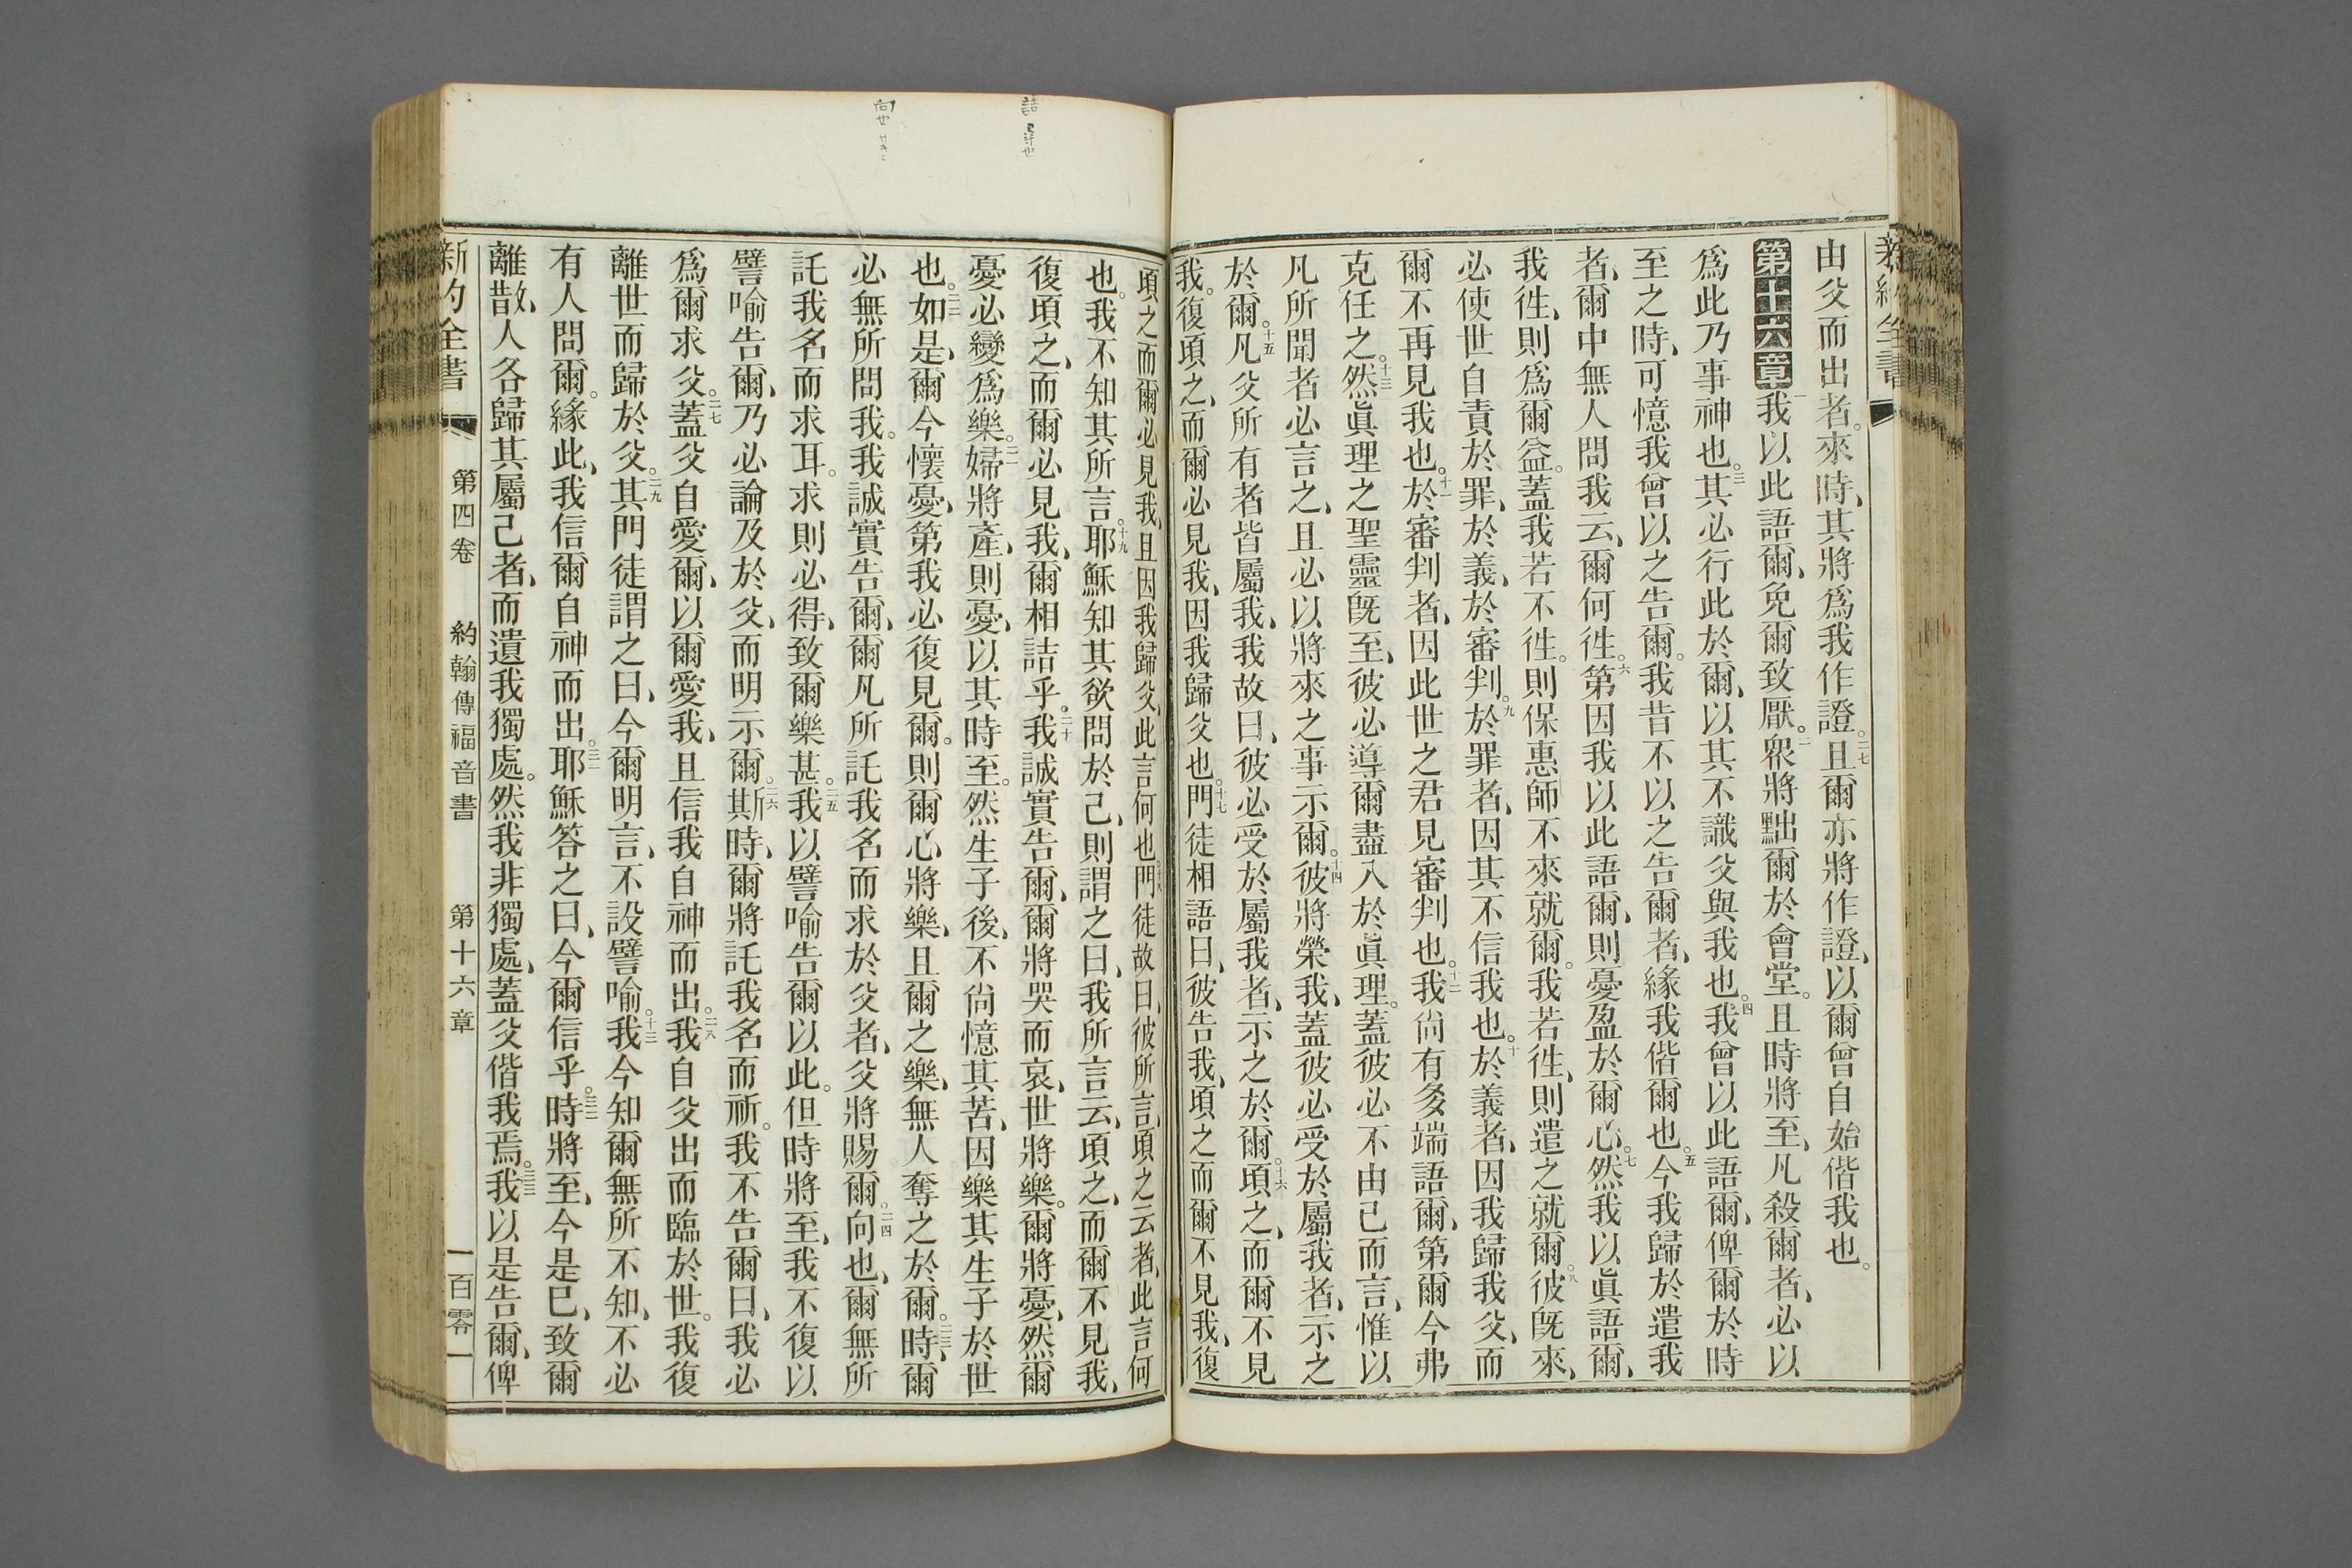 新約全書
由父而出者。來時、其將爲我作證。二七且爾亦將作證、以爾曾自始偕我也。
第十六章一我以此語爾、免爾致厭。二衆將黜爾於會堂。且時將至、凡殺爾者、必以
爲此乃事神也。三其必行此於爾、以其不識父與我也。四我曾以此語爾、俾爾於時
至之時、可憶我曾以之告爾。我昔不以之告爾者、緣我偕爾也。五今我歸於遣我
者、爾中無人問我云、爾何徃。六第因我以此語爾、則憂盈於爾心。七然我以眞語爾、
我徃、則爲爾益。蓋我若不徃。則保惠師不來就爾。我若徃、則遣之就爾。八彼旣來、
必使世自責於罪、於義、於審判。九於罪者、因其不信我也。十於義者、因我歸我父、而
爾不再見我也。十一於審判者、因此世之君見審判也。十二我尙有多端語爾、第爾今弗
克任之。十三然眞理之聖靈旣至、彼必導爾盡入於眞理。蓋彼必不由己而言、惟以
凡所聞者必言之、且必以將來之事示爾。十四彼將榮我、蓋彼必受於屬我者、示之
於爾。十五凡父所有者皆屬我、我故曰、彼必受於屬我者、示之於爾。十六頃之、而爾不見
我。復頃之、而爾必見我、因我歸父也。十七門徒相語曰、彼告我、頃之而爾不見我、復
詰 also
向也
頃之而爾必見我、且因我歸父、此言何也。十八門徒故曰、彼所言、頃之云者、此言何
也。我不知其所言。十九耶穌知其欲問於己、則謂之曰、我所言云、頃之、而爾不見我、
復頃之、而爾必見我、爾相詰乎。二十我誠實告爾、爾將哭而哀、世將樂。爾將憂、然爾
憂必變爲樂。二一婦將產、則憂、以其時至。然生子後、不尙憶其苦、因樂其生子於世
也。二二如是、爾今懷憂、第我必復見爾。則爾心將樂、且爾之樂、無人奪之於爾。二三時、爾
必無所問我。我誠實告爾、爾凡所託我名而求於父者、父將賜爾。二四向也、爾無所
託我名而求耳。求則必得、致爾樂甚。二五我以譬喻告爾以此。但時將至、我不復以
譬喻告爾、乃必論及於父、而明示爾。二六斯時、爾將託我名而祈。我不告爾曰、我必
爲爾求父。二七蓋父自愛爾、以爾愛我、且信我自神而出。二八我自父出而臨於世。我復
離世而歸於父。二九其門徒謂之曰、今爾明言、不設譬喻。十三我今知爾無所不知、不必
有人問爾。緣此、我信爾自神而出。三一耶穌答之曰、今爾信乎。三二時將至、今是已、致爾
離散、人各歸其屬己者、而遺我獨處。然我非獨處、蓋父偕我焉。三三我以是告爾、俾
新約全書 第四卷 約翰傳福音書 第十六章 一百零一